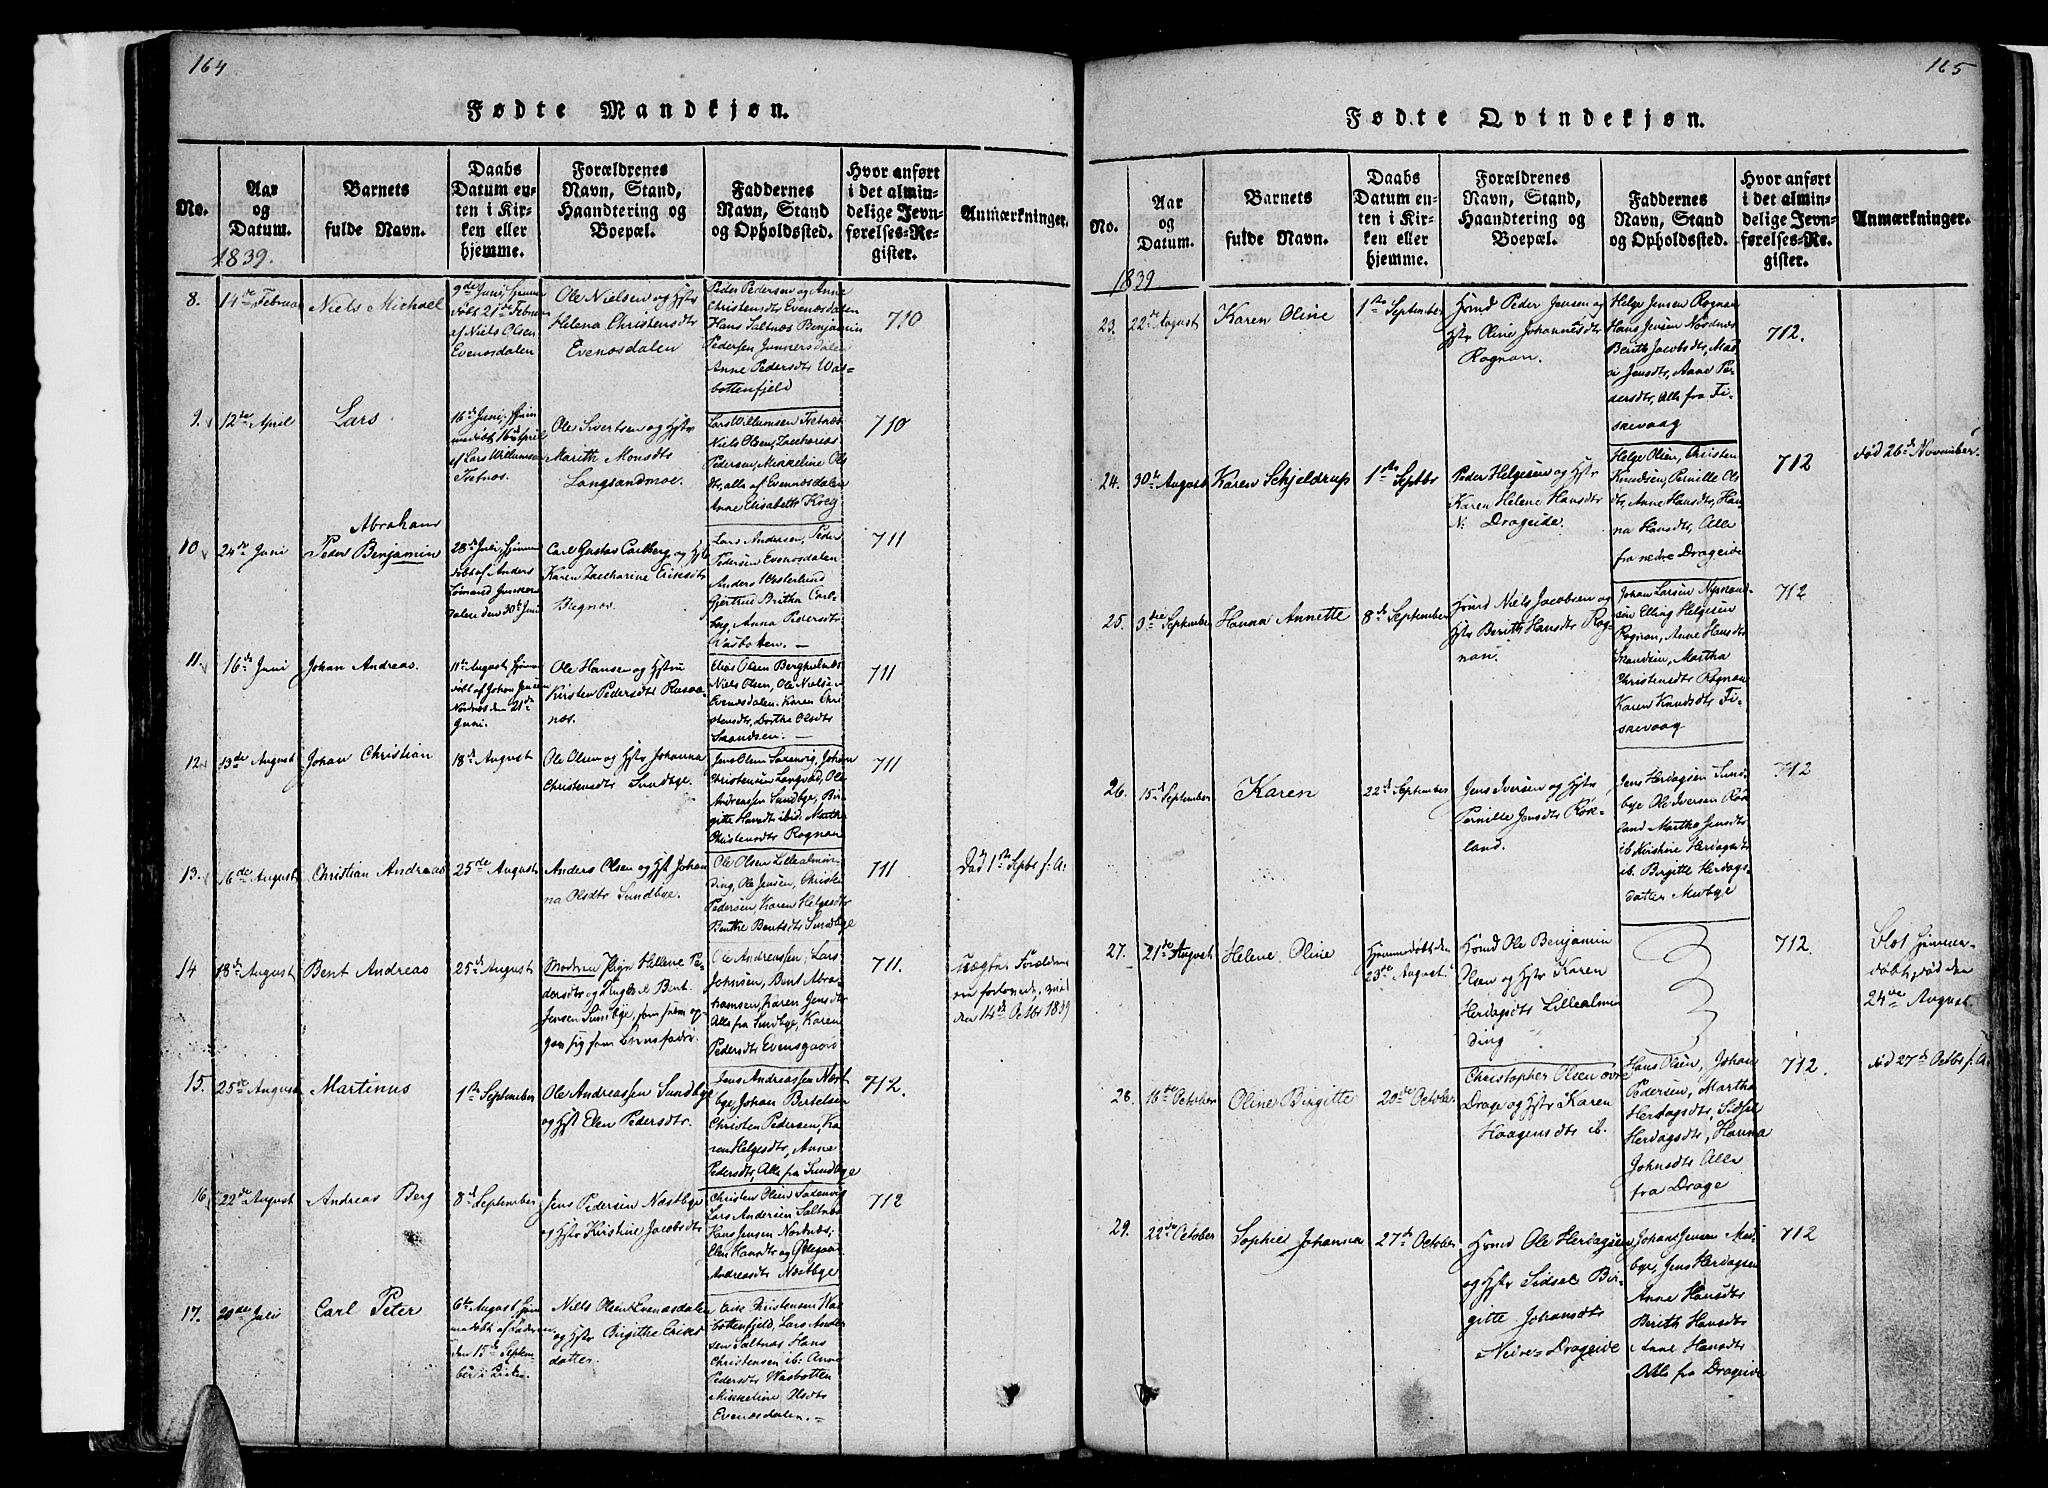 164
Fødte Mandkjøn.
No.
Aar
og
Datum.
1839.
Barnets
fulde Navn.
Daabs
Datum en-
ten i Kir-
ken eller
hjemme.
Forældrenes
Navn, Stand,
Haandtering og
Boepæl.
Faddernes
Navn, Stand
og Opholdssted.
Hvor anført
i det almin-
delige Jevn-
førelses-Re-
gister.
Anmærkninger.
8.
14de Februar
Niels Michael
9de Juni, hjemme
døbt 21de Februar
af Niels Olsen
Evenosdalen
Ole Nielsen og Hstr
Helena Christensdtr
Evenosdalen
Peder Pedersen og Anne
Christensdtr Evenosdalen
Hans Saltnæs Benjamin
Pedersen Junkersdalen
Anne Pedersdtr Vas-
bottenfjeld
710
9.
12te April
Lars
16de Juni, hjem
medøbt 16de April
af Lars Willumsen
Tretnes
Ole Sivertsen og Hstr
Marith Monsdtr
Langsandmoe.
Lars Willumsen Tretnæs
Niels Olsen, Zaccharias
Pedersen, Mikkeline Ols
dtr, alle af Evenosdalen
Anne Elisabeth Krey
710
10
24de Juni
Abraham
Peder Benjamin
28de Juli, hjemme
døbt af Anders
Junkers-
dalen den 30te Juni
Carl Gustav Carlberg og Hstr
Karen Zaccharine Eriksdtr
Lars Andersen, Peder
Pedersen Evenosdalen
Anders Westerlund
Gjertrue Britha Carl-
berg, Anna Pedersdtr
Vasbotten.
711
11.
16de Juni
Johan Andreas.
11te August, hjemme
døbt af Johan Jensen
Nordnæs den 21de
Juni.
Ole Hansen og Hstru
Kirsten Pedersdtr Rusaa-
næs.
Elias Olsen Berghulnæs
Niels Olsen, Ole Nielsen
Evenesdalen. Karen Chri
stensdtr, Dorthe Olsdtr
711
12
13de August
Johan Christian
18de August
Ole Olsen og Hstr Johanna
Christensdtr Sundbye.
Jens Olsen Saxenvig, Johan
Christensen Langvad, Ole
Andreassen Sundbye, Bir-
gitte Hansdtr ibid. Martha
Christensdtr Rognan
711
13.
16de August
Christian Andreas
25de August
Anders Olsen og Hst Johan
na Olsdtr Sundbye.
Ole Olsen Lillealmin-
ding, Ole Jensen, Christen
Pedersen, Karen Helgesdtr
Benthe Bentsdtr Sundbye
711
Død 1ste Sptbr s: A:
14
18de August
Bent Andreas
25de August
Moderen Pign Hellene Pe-
dersdtr og Ungkarl Bent
Jensen Sundbye, som frem op-
gav sig som Barnefader.
Ole Andreassen, Lars
Johnsen, Bent Abra-
hamsen, Karen Jensdtr
Alle fra Sundbye, Karen
Pedersdtr Evensgaard
711.
Uægte. Forældrene
ere forlovede,
den 14de Octbr 1839
15.
25de August
Martinus
1ste September
Ole Andreassen Sundbye
og Hst Elen Pedersdtr.
Jens Andreassen Næst
bye, Johan Bertelsen
Christen Pedersen, Ka
ren Helgesdtr, Anne
Pedersdtr, Alle fra Sundbye
712.
16
22de August
Andreas Berg
8de September
Jens Pedersen Næstbye
og Hstr Kristine Jacobsdtr
Christen Olsen Saxenvig
Lars Andersen Saltnæs
Hans Jensen Nordnæs,
Elen Hansdtr og Ødegaard
Andreasdtr Næstbye
712
17.
20de Juli
Carl Peter
6te August, hjem
medøbt af Faderen
den 15de Septem-
ber i Kirken.
Niels Olsen Evenesdalen
og Hstr Birgithe Eriks
datter.
Christensen Vas
bottenfjeld, Lars Ander
sen Saltnæs Hans
Christensen ib: Anne
Pedersdtr Wasbotten
Mikkeline Olsdtr
Evenesdalen.
165
Fødte Qvindekjøn.
No.
Aar
og
Datum.
1839
Barnets
fulde Navn.
Daabs
Datum en-
ten i Kir-
ken eller
hjemme.
Forældrenes
Navn, Stand,
Haandtering og
Boepæl.
Faddernes
Navn, Stand
og Opholdssted.
Hvor anført
i det almin-
delige Jevn-
førelses-Re-
gister.
Anmærkninger.
23.
22de August
Karen Oline
1ste September
Hsmd Peder Jensen og
Hstr Oline Johannesdtr
Rognan.
Helge Jensen Rognan
Hans Jensen Nordnes
Berith Jacobsdtr, Mas
i Jensdtr, Anne Pe-
dersdtr, Alle fra Fi-
skevaag
712.
24.
30te August
Karen Schjeldrup
1ste Septbr
Peder Helgesen og Hstr
Karen Helene Hansdtr
N: Drageide.
Helge Olsen, Christen
Knudsen, Pernille Ols
dtr, Anne Hansdtr, Han
na Hansdtr, Alle
fra nedre Drageide
712
død 26de November.
25.
3die September
Hanna Annette
8de September
Hsmd Niels Jacobsen og
Hstr Berith Hansdtr Rog-
nan.
Johan Larsen
Elling Helgesen
Rognan, Anne Hansdtr
Martha
Christensdtr Rognan
Karen Knudsdtr Fi-
skevaag
712
26.
15de September
Karen
22de September
Jens Iversen og Hstr
Pernille Jensdtr Røk-
land.
Jens Herdagsen Sund
bye Ole Iversen Røk
land Martha Jensdtr
ib Kirstine Herdagsdtr
ib. Birgitte Herdags
datter Medbye
712
27.
21de August
Helene Oline
Hjemmedøbt den
23de August.
Hsmd Ole Benjamin
Olsen og Hstr Karen
Herdagsdtr Lillealmin
ding
712.
blot hjemme-
døbt, død den
24de August
28.
16de October
Oline Birgitte
20de October
Christopher Olsen øvre
Drage og Hstr Karen
Haagensdtr ib.
Hans Olsen, Johan
Pedersen, Martha
Herdagsdtr, Sidsel
Herdagsdtr, Hanna
Johnsdtr Alle
fra Drage
712.
død 27de Octbr s. A:
29.
22de October
Sophie Johanna
27de October
Hsmd Ole Herdagsen
og Hstr Sidsel Bir-
gitte Johansdtr
Nedre Drageide
Johan Jensen Med-
bye, Jens Herdagsen
Anne Hansdtr
Berith Hansdtr
Anne Hansdtr
Alle fra Drageide
712